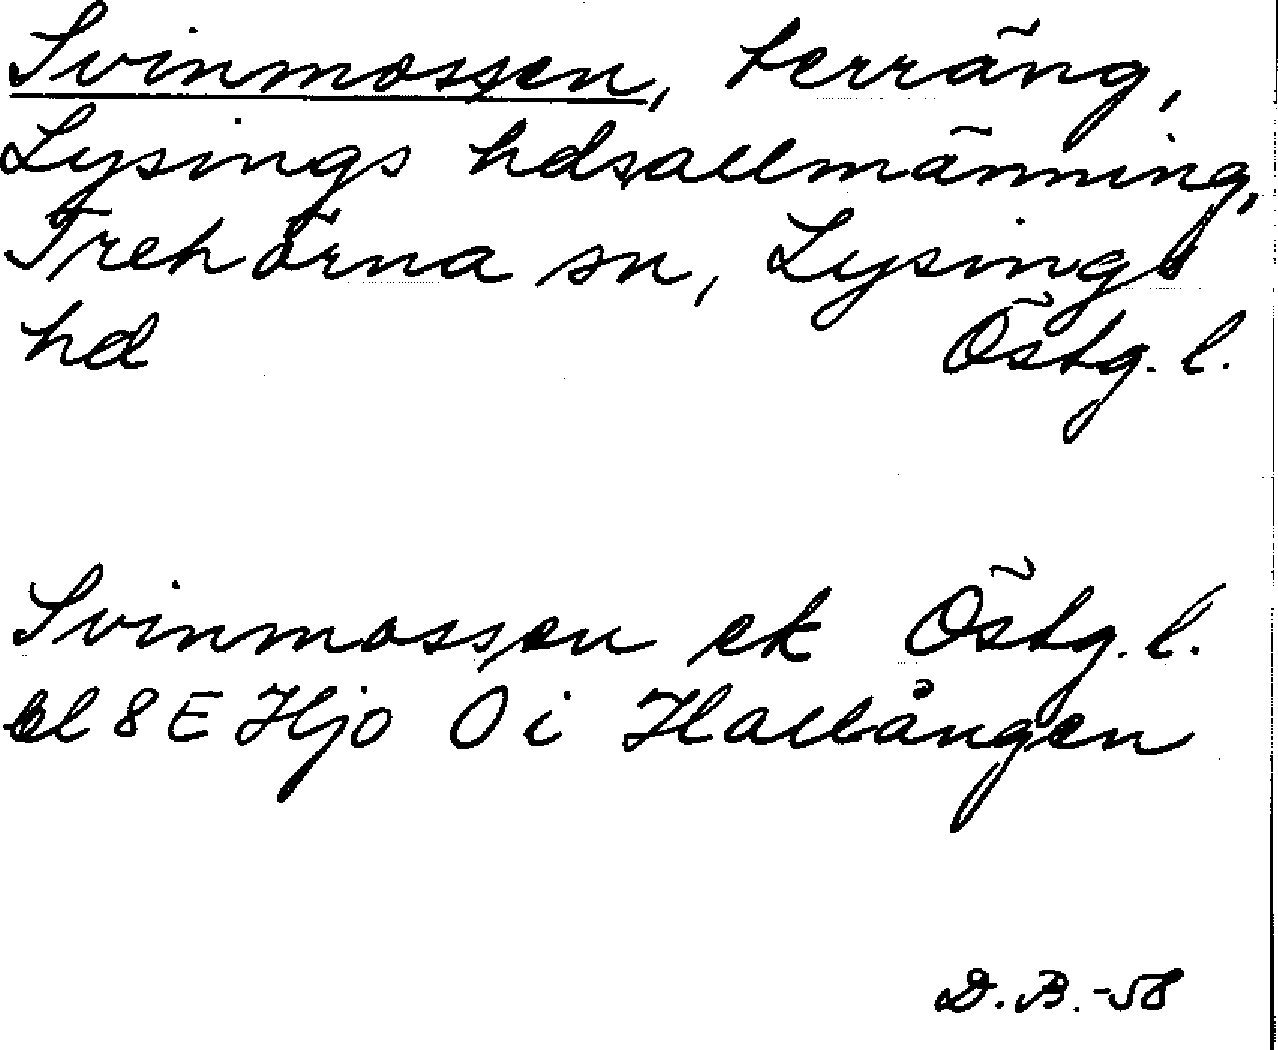 Svinmossen, terräng,
Lysings hdsallmänning,
Trehörna sn, Lysings
hd Östg. l.
Svinmossen ek Östg. l.
bl 8 E Hjo O i Hallången
D.B.-58